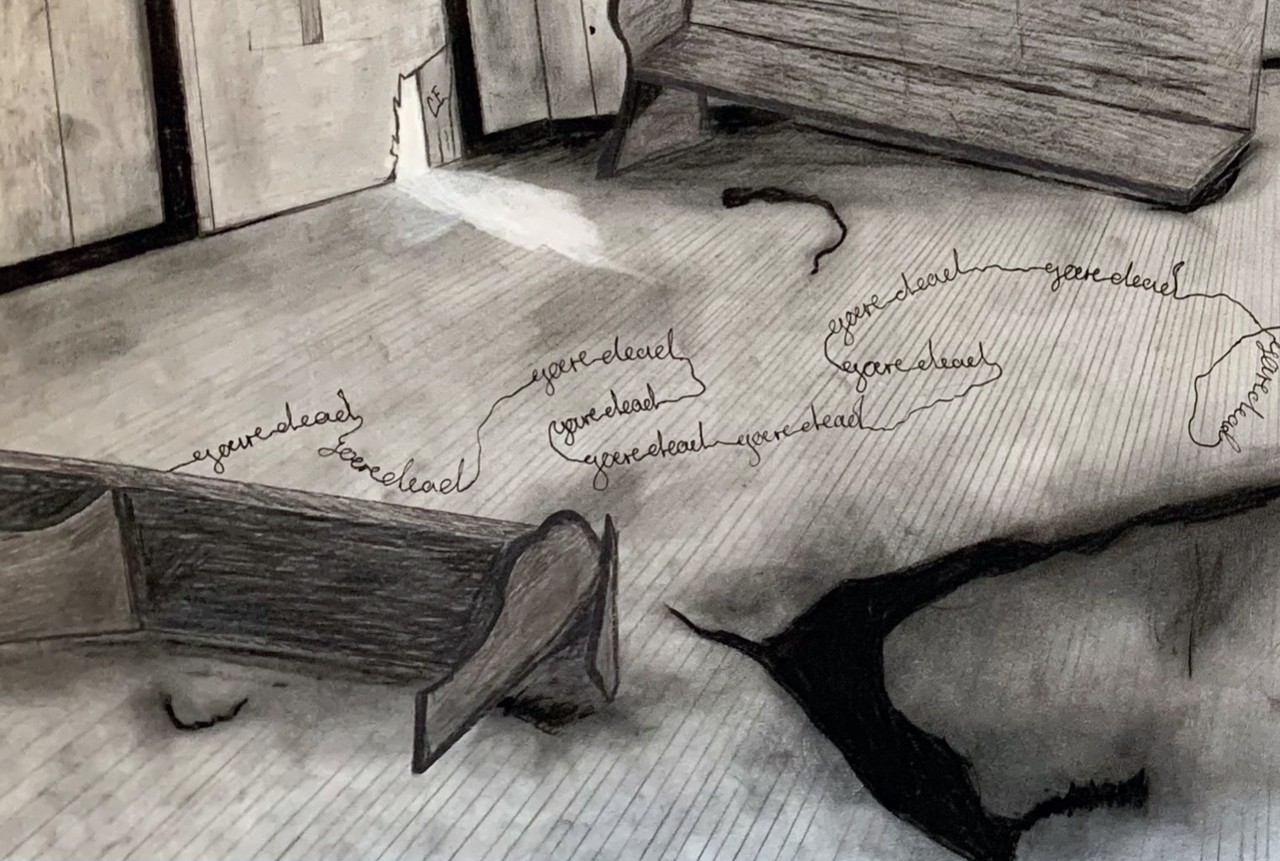 CE
youre dead
youre dead
youre dead
youre dead
youre dead
youre dead
youre dead
youre dead
youre dead
youre dead